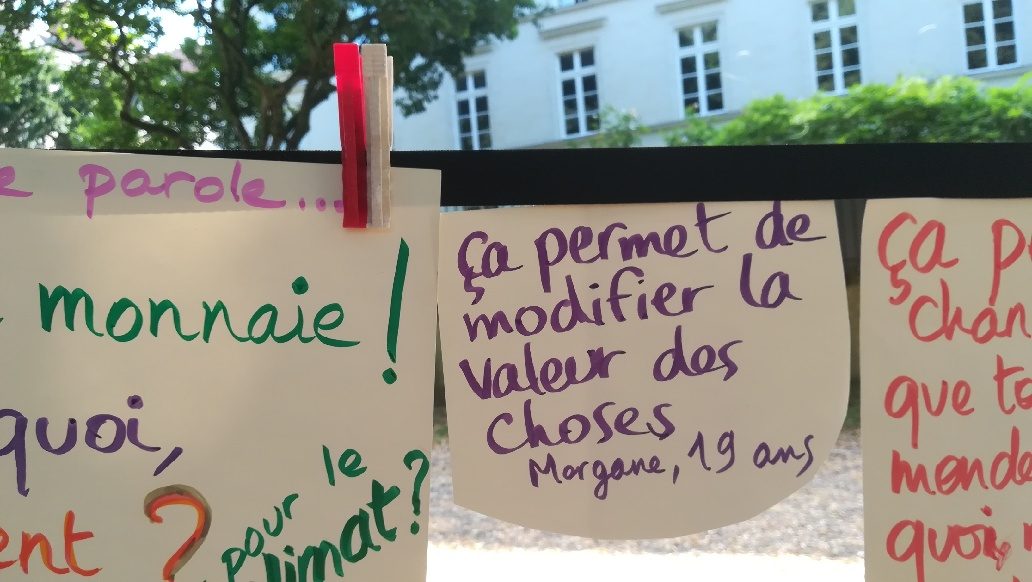 parole...
monnaie !
quoi,
ent ?
pour le
limat ?
ça permet de
modifier la
valeur des
choses
Morgane, 19 ans
ça p
chan
que to
monde
quoi,